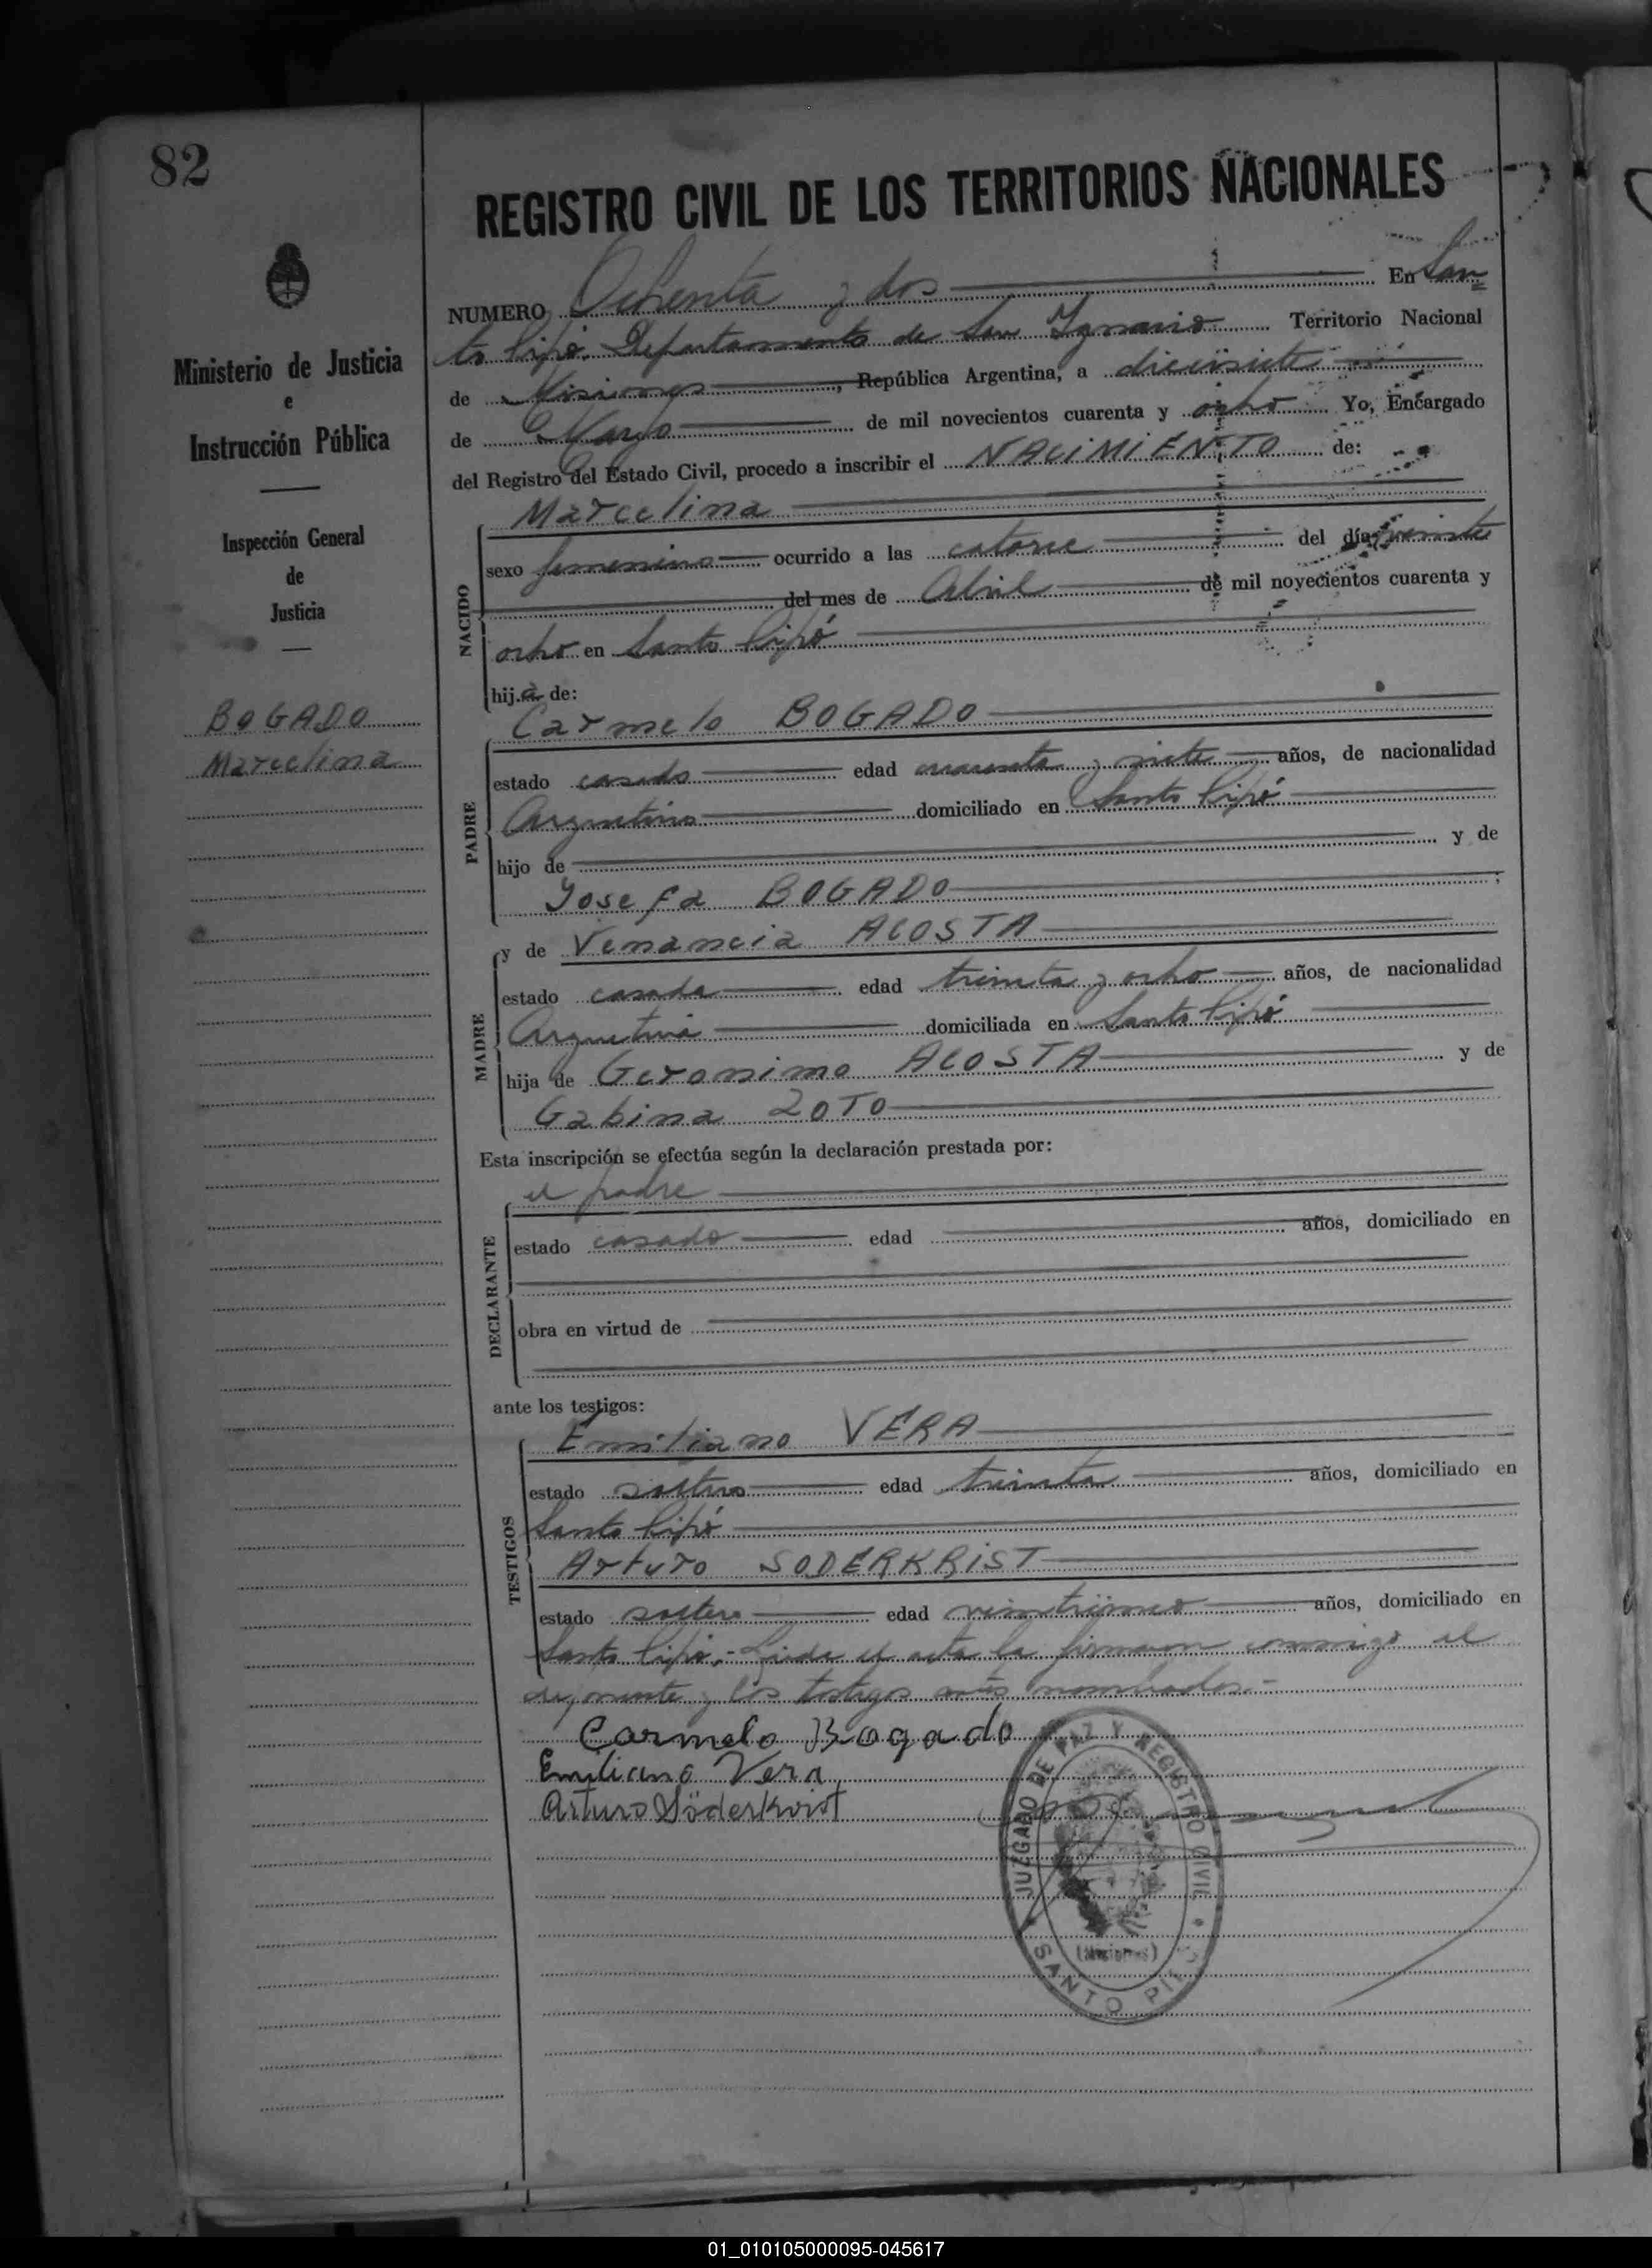 82
REGISTRO CIVIL DE LOS TERRITORIOS NACIONALES
NUMERO Ochenta y dos En San
to Pipó. Departamento de San Ignacio Territorio Nacional
de Misiones, República Argentina, a diecisiete
de Mayo de mil novecientos cuarenta y ocho Yo, Encargado
del Registro del Estado Civil, procedo a inscribir el NACIMIENTO de:
Marcelina
sexo femenino ocurrido a las catorce del día veinte
del mes de Abril de mil novecientos cuarenta y
ocho en Santo Pipó
hija de:
NACIDO
Carmelo BOGADO
estado casado edad cuarenta y siete años, de nacionalidad
Argentino domiciliado en Santo Pipó
hijo de y de
Josefa BOGADO
PADRE
y de Venancia ACOSTA
estado casada edad treinta y ocho años, de nacionalidad
Argentina domiciliada en Santo Pipó
hija de Geronimo ACOSTA y de
Gabina ZOTO
MADRE
Esta inscripción se efectúa según la declaración prestada por:
el padre
estado casado edad años, domiciliado en
obra en virtud de
DECLARANTE
ante los testigos:
Emiliano VERA
estado soltero edad treinta años, domiciliado en
Santo Pipó
Arturo SODERKRIST
estado soltero edad años, domiciliado en
Santo Pipó.- Leída el acta la firmaron conmigo el
deponente y los testigos antes nombrados.-
TESTIGOS
Carmelo Bogado
Emiliano Vera
Arturo Söderkvist
JUZGADO DE PAZ Y REGISTRO CIVIL
(Misiones)
SANTO PIPO
Ministerio de Justicia
e
Instrucción Pública
Inspección General
de
Justicia
BOGADO
Marcelina
01_010105000095-045617